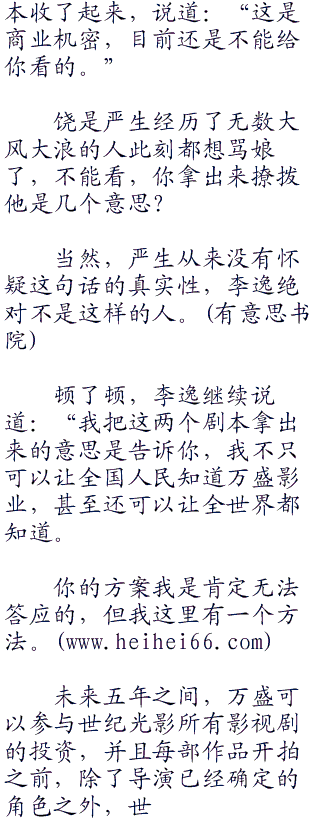 本收了起来，说道：“这是
商业机密，目前还是不能给
你看的。”
饶是严生经历了无数大
风大浪的人此刻都想骂娘
了，不能看，你拿出来撩拨
他是几个意思？
当然，严生从来没有怀
疑这句话的真实性，李逸绝
对不是这样的人。(有意思书
院)
顿了顿，李逸继续说
道：“我把这两个剧本拿出
来的意思是告诉你，我不只
可以让全国人民知道万盛影
业，甚至还可以让全世界都
知道。
你的方案我是肯定无法
答应的，但我这里有一个方
法。(www.heihei66.com)
未来五年之间，万盛可
以参与世纪光影所有影视剧
的投资，并且每部作品开拍
之前，除了导演已经确定的
角色之外，世